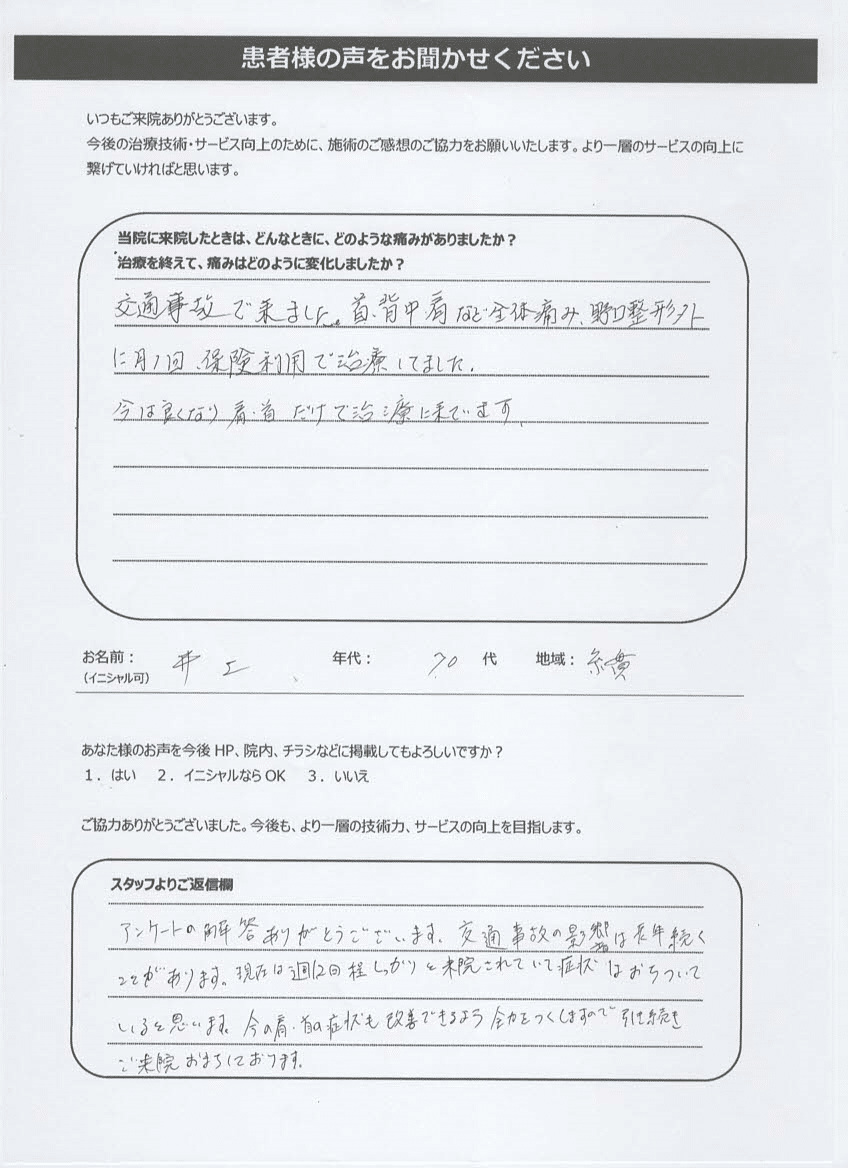 患者様の声をお聞かせください
いつもご来院ありがとうございます。
今後の治療技術・サービス向上のために、施術のご感想のご協力をお願いいたします。より一層のサービスの向上に
繋げていければと思います。
当院に来院したときは、どんなときに、どのような痛みがありましたか？
治療を終えて、痛みはどのように変化しましたか？
交通事故で来ました。首、背中肩など全体痛み、野口整形外
に月1回、保険利用で治療してました。
今は良くなり肩・首だけで治療に来ています。
お名前： 井エ 年代： 70 代 地域： 糸貫
（イニシャル可）
あなた様のお声を今後 HP、院内、チラシなどに掲載してもよろしいですか？
１．はい ２．イニシャルなら OK ３．いいえ
ご協力ありがとうございました。今後も、より一層の技術力、サービスの向上を目指します。
スタッフよりご返信欄
アンケートの解答ありがとうございます。交通事故の影響は長年続く
ことがあります。現在は週に2回程しっかりと来院されていて症状はおちついて
いると思います。今の肩・首の症状も改善できるよう全力をつくしますので引き続き
ご来院おまちしております。